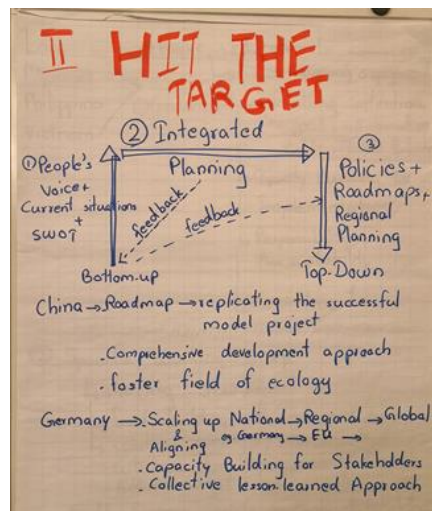 II HIT THE
TARGET
② Integrated
Planning
① People's
Voice+
Current situation
+
SWOT
feedback
feedback
③
Policies+
Roadmaps+
Regional
Planning
Bottom-up
Top-Down
China → Roadmap → replicating the successful
model project
.Comprehensive development approach
.foster field of ecology
Germany → .Scaling up National → Regional → Global
& Aligning eg Germany → EU →
.Capacity Building for Stakeholders
.Collective lesson learned Approach